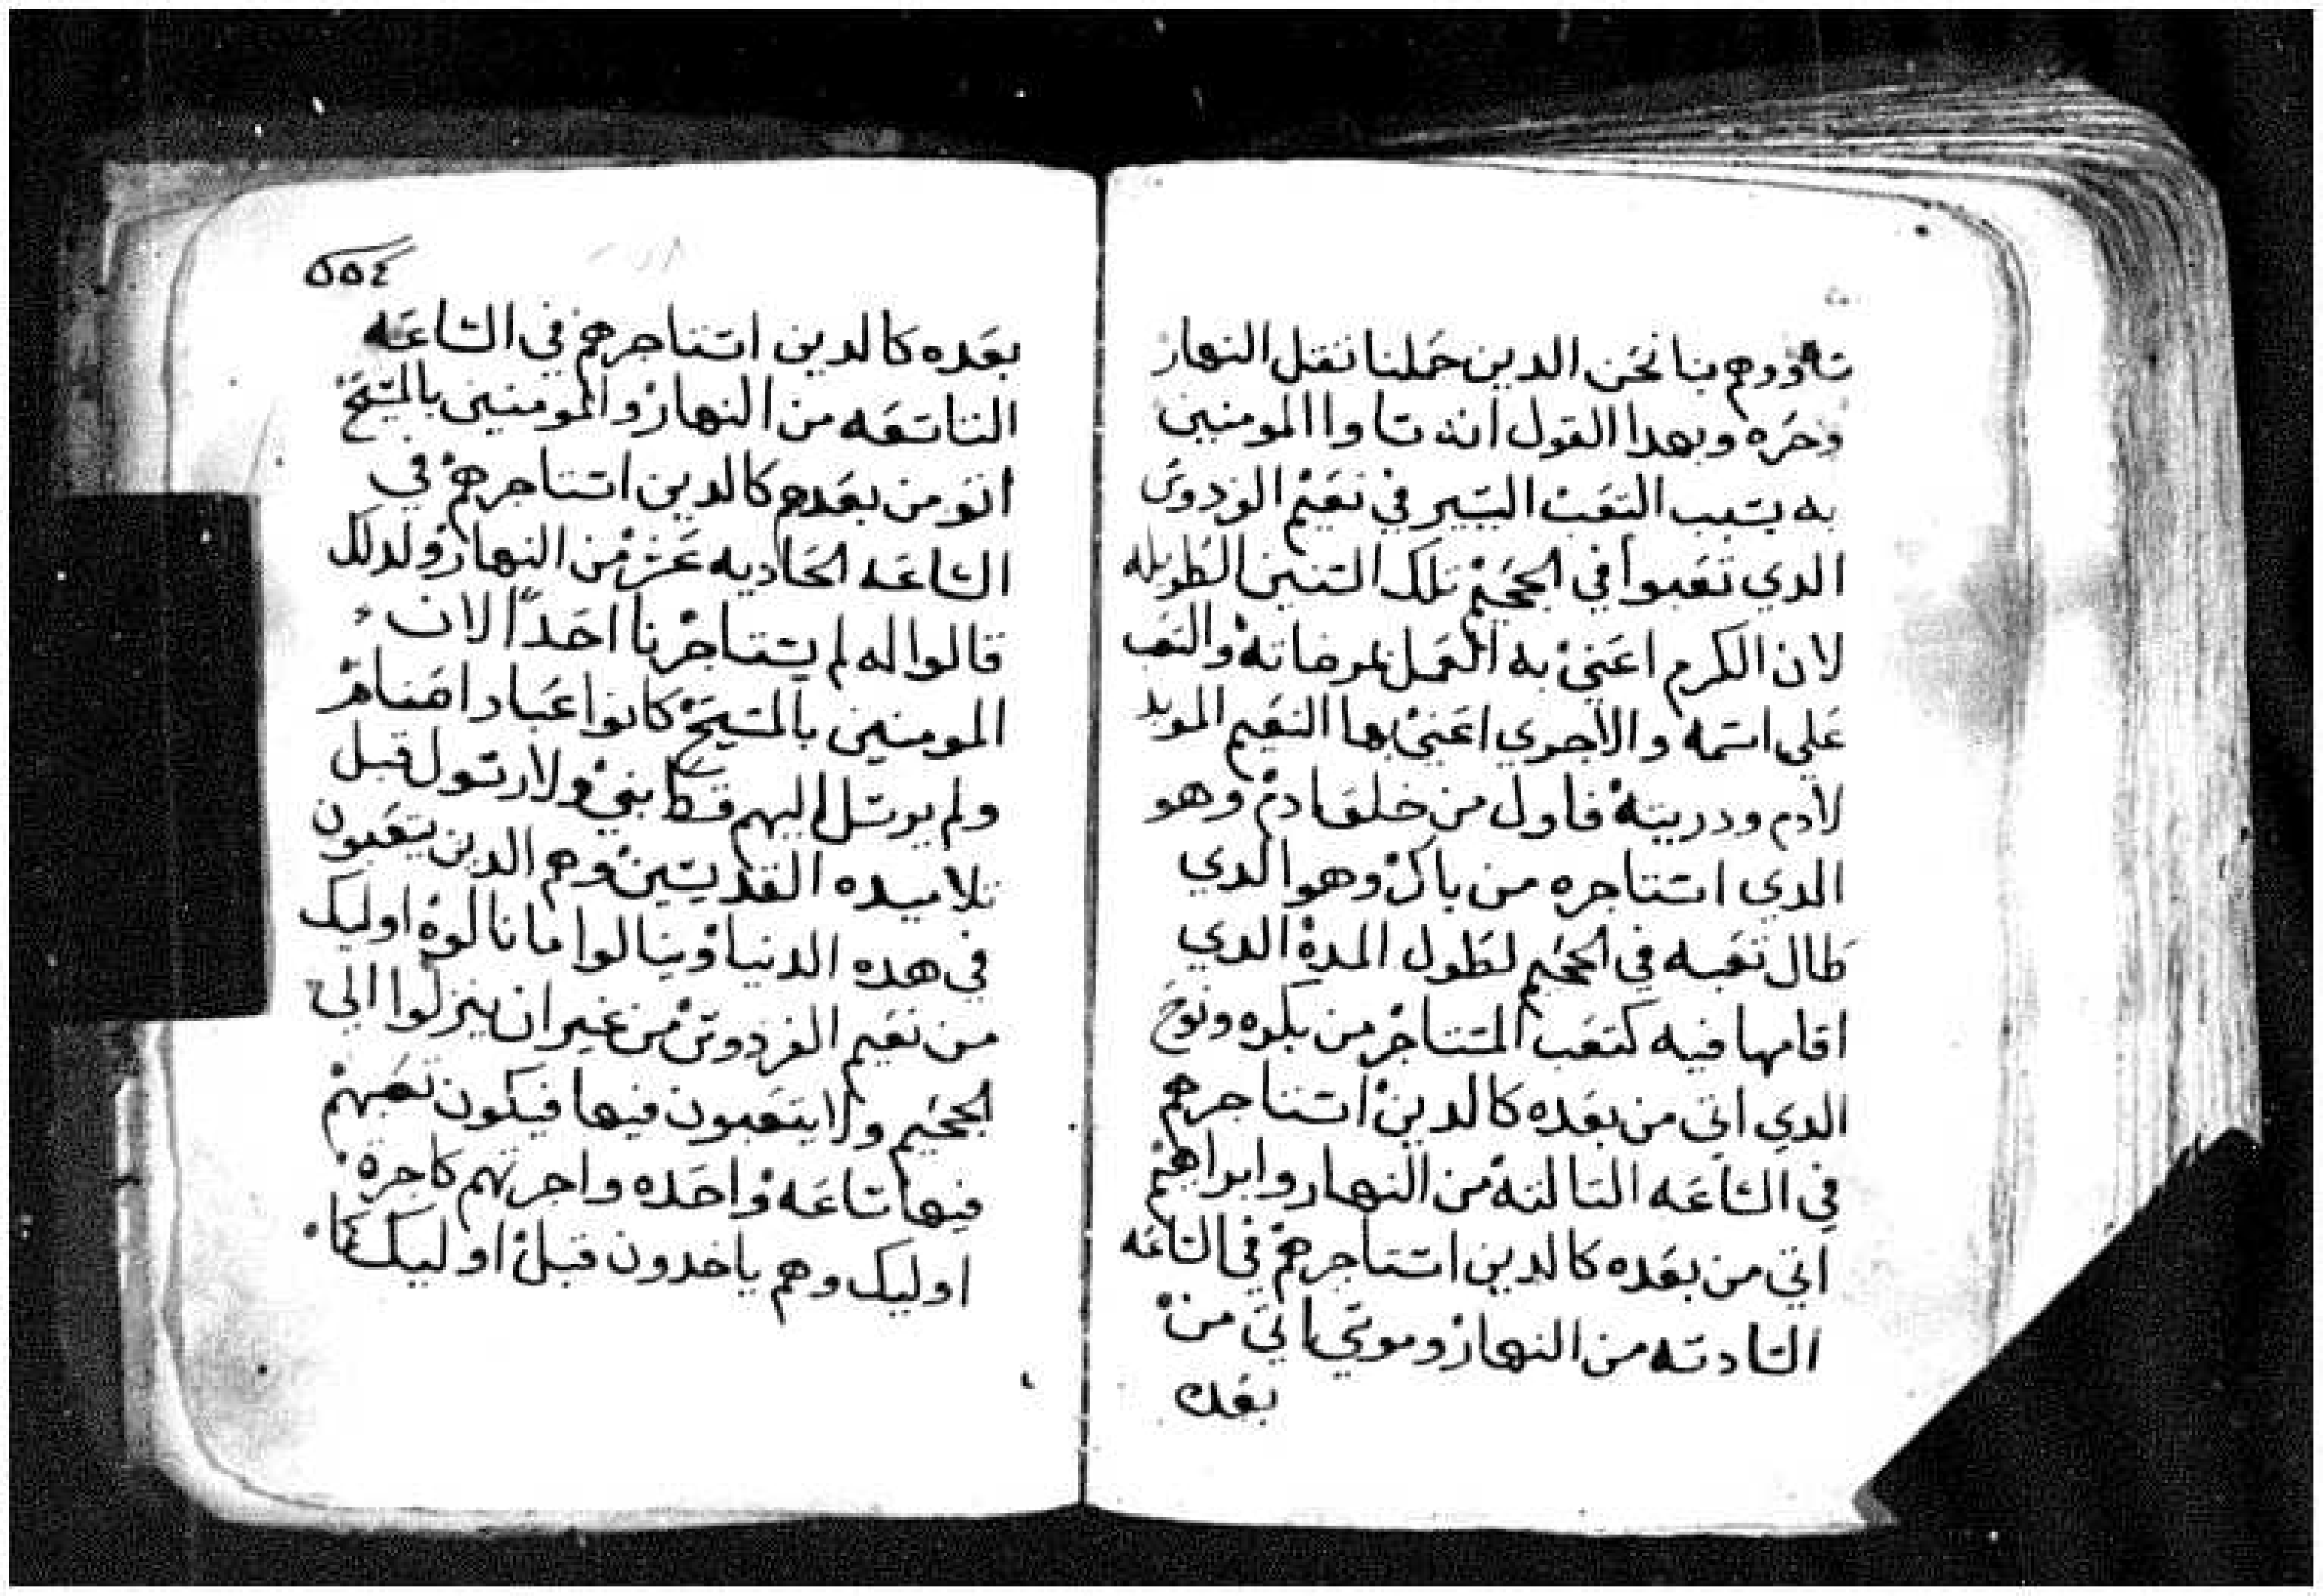 تاويهم بنا نحن الدين حملنا تقل النهار
وحره وبهدا القول انه تاوا المومنين
به بسبب التعب اليسير في نعيم الفردوس
الدي تعبوا في الجحيم تلك السنين الطويله
لان الكرم اعني به العمل بمرضاته والتعب
علي اسمه والاجري اعني بها النعيم الموبد
لادم ودريته فاول من خلق ادم وهو
الدي استاجره من باكر وهو الدي
طال تعبه في الجحيم لطول المدة الدي
اقامها فيه كتعب المستاجر من بكره ونوح
الدي اتي من بعده كالدين استاجرهم
في الساعه التالته من النهار وابراهيم
اتي من بعده كالدين استاجرهم في الساعه
السادسه من النهار وموسي اتي من
بعده
٥٥٤
بعده كالدين استاجرهم في الساعه
التاسعه من النهار والمومنين بالمسيح
اتو من بعدهم كالدين استاجرهم في
الساعه الحاديه عشر من النهار ولدلك
قالوا له لم يستاجرنا احدًا لان
المومنين بالمسيح كانوا عباد اصنام
ولم يرسل اليهم قط نبي ولا رسول قبل
تلاميده القديسين وهم الدين يتعبون
في هده الدنيا وينالوا ما نالوه اوليك
من نعيم الفردوس من غير ان ينزلوا الي
الجحيم ولا يتعبون فيها فيكون تعبهم
فيها ساعه واحده واجرتهم كاجرة
اوليك وهم ياخدون قبل اوليك كما